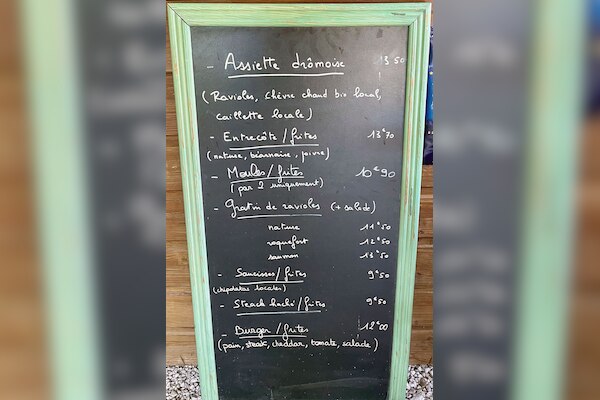 - Assiette drômoise 13€50
(Ravioles, chèvre chaud bio local,
caillette locale)
- Entrecôte/frites 13€70
(nature, béarnaise, poivre)
- Moules/frites 10€90
(par 2 uniquement)
- Gratin de ravioles (+ salade)
nature 11€50
roquefort 12€50
saumon 13€50
- Saucisses/frites 9€50
(chipolatas locales)
- Steack haché/frites 9€50
- Burger/frites 12€00
(pain, steak, cheddar, tomate, salade)